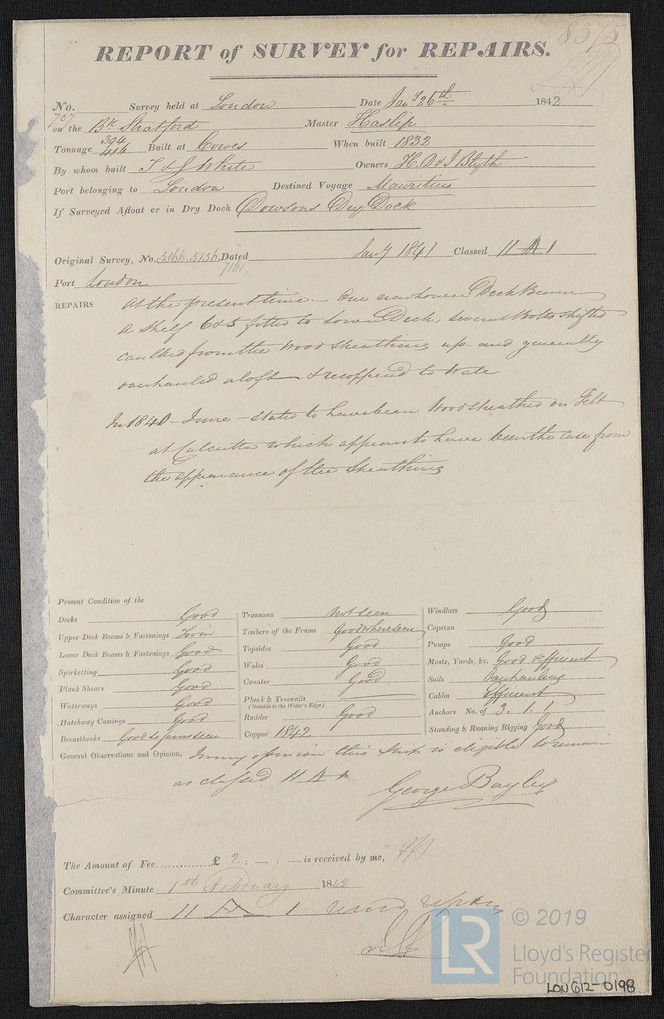 REPORT of SURVEY for REPAIRS.
No. 707 Survey held at London Date Jany 26th 1842
on the Bk Stratford Master Haslip
Tonnage 394 416 Built at Cowes When built 1832
By whom built T & J White Owners H. D & J Blyth
Port belonging to London Destined Voyage Mauritius
If Surveyed Afloat or in Dry Dock Dowsons Dry Dock
Original Survey, No. 3966.5136. Dated Jany 1841 Classed 11 A 1
7161
Port London
REPAIRS at the present time - One new lower Deck Beam
a Shelf fitted to lower Deck, several Bolts shifted
caulked from the wood sheathing up and generally
overhauled aloft & recoppered to Wale
In 1840 - June - stated to have been Wood Sheathed on Felt
at Calcutta which appears to have been the case from
the appearance of the Sheathing
Present Condition of the
Decks Good
Upper Deck Beams & Fastenings
Lower Deck Beams & Fastenings Good
Spirketting Good
Plank Shears Good
Waterways Good
Hatchway Comings Good
Breasthooks Good so far as seen
Transoms Not seen
Timbers of the Frame Good where seen
Topsides Good
Wales Good
Counter Good
Plank & Treenails
(Outside to the Water's Edge)
Rudder Good
Copper 1842
Windlass Good
Capstan
Pumps Good
Masts, Yards, &c. Good & Efficient
Sails Overhauling
Cables Efficient
Anchors No. of 3. 1. 1
Standing & Running Rigging Good
General Observations and Opinion, In my opinion this Ship is eligible to remain
as classed 11 A 1
George Bayley
The Amount of Fee.............. £ 2 : — : — is received by me,
Committee's Minute 1st February 1842
Character assigned 11 A 1
© 2019
LR
Lloyd's Register
Foundation
LON612-0198